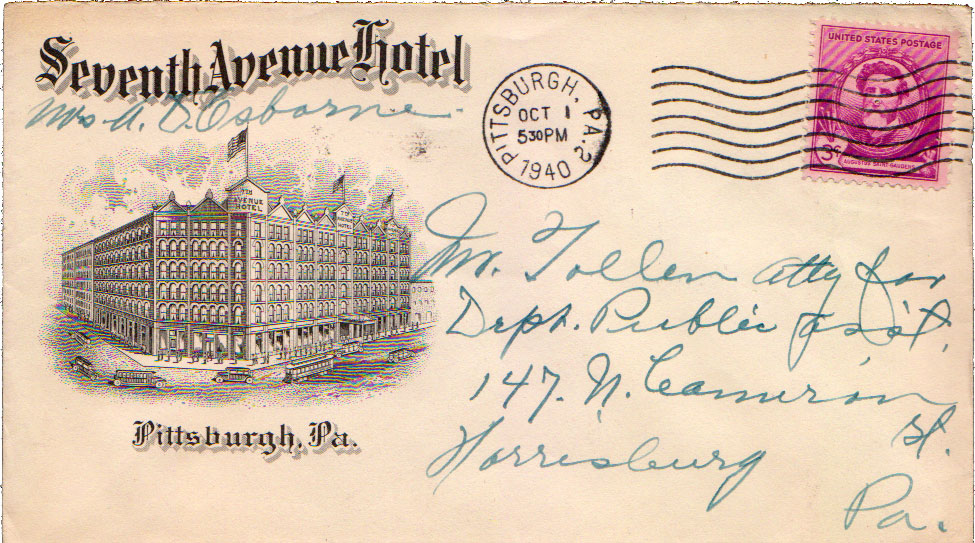 Seventh Avenue Hotel
Mrs A. D. Osborne
7TH
AVENUE
HOTEL
Pittsburgh, Pa.
PITTSBURGH, PA. 2
OCT 1
5 30 PM
1940
UNITED STATES POSTAGE
3¢
AUGUSTUS SAINT-GAUDENS
Mr. Tollen Atty for
Dept. Public Ass't.
147. N. Cameron
St.
Harrisburg
Pa.